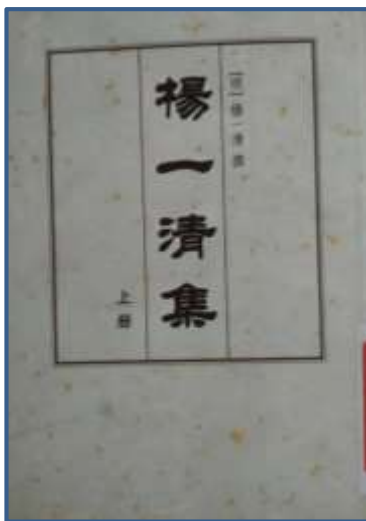 [明]楊一清撰
楊一清集
上冊